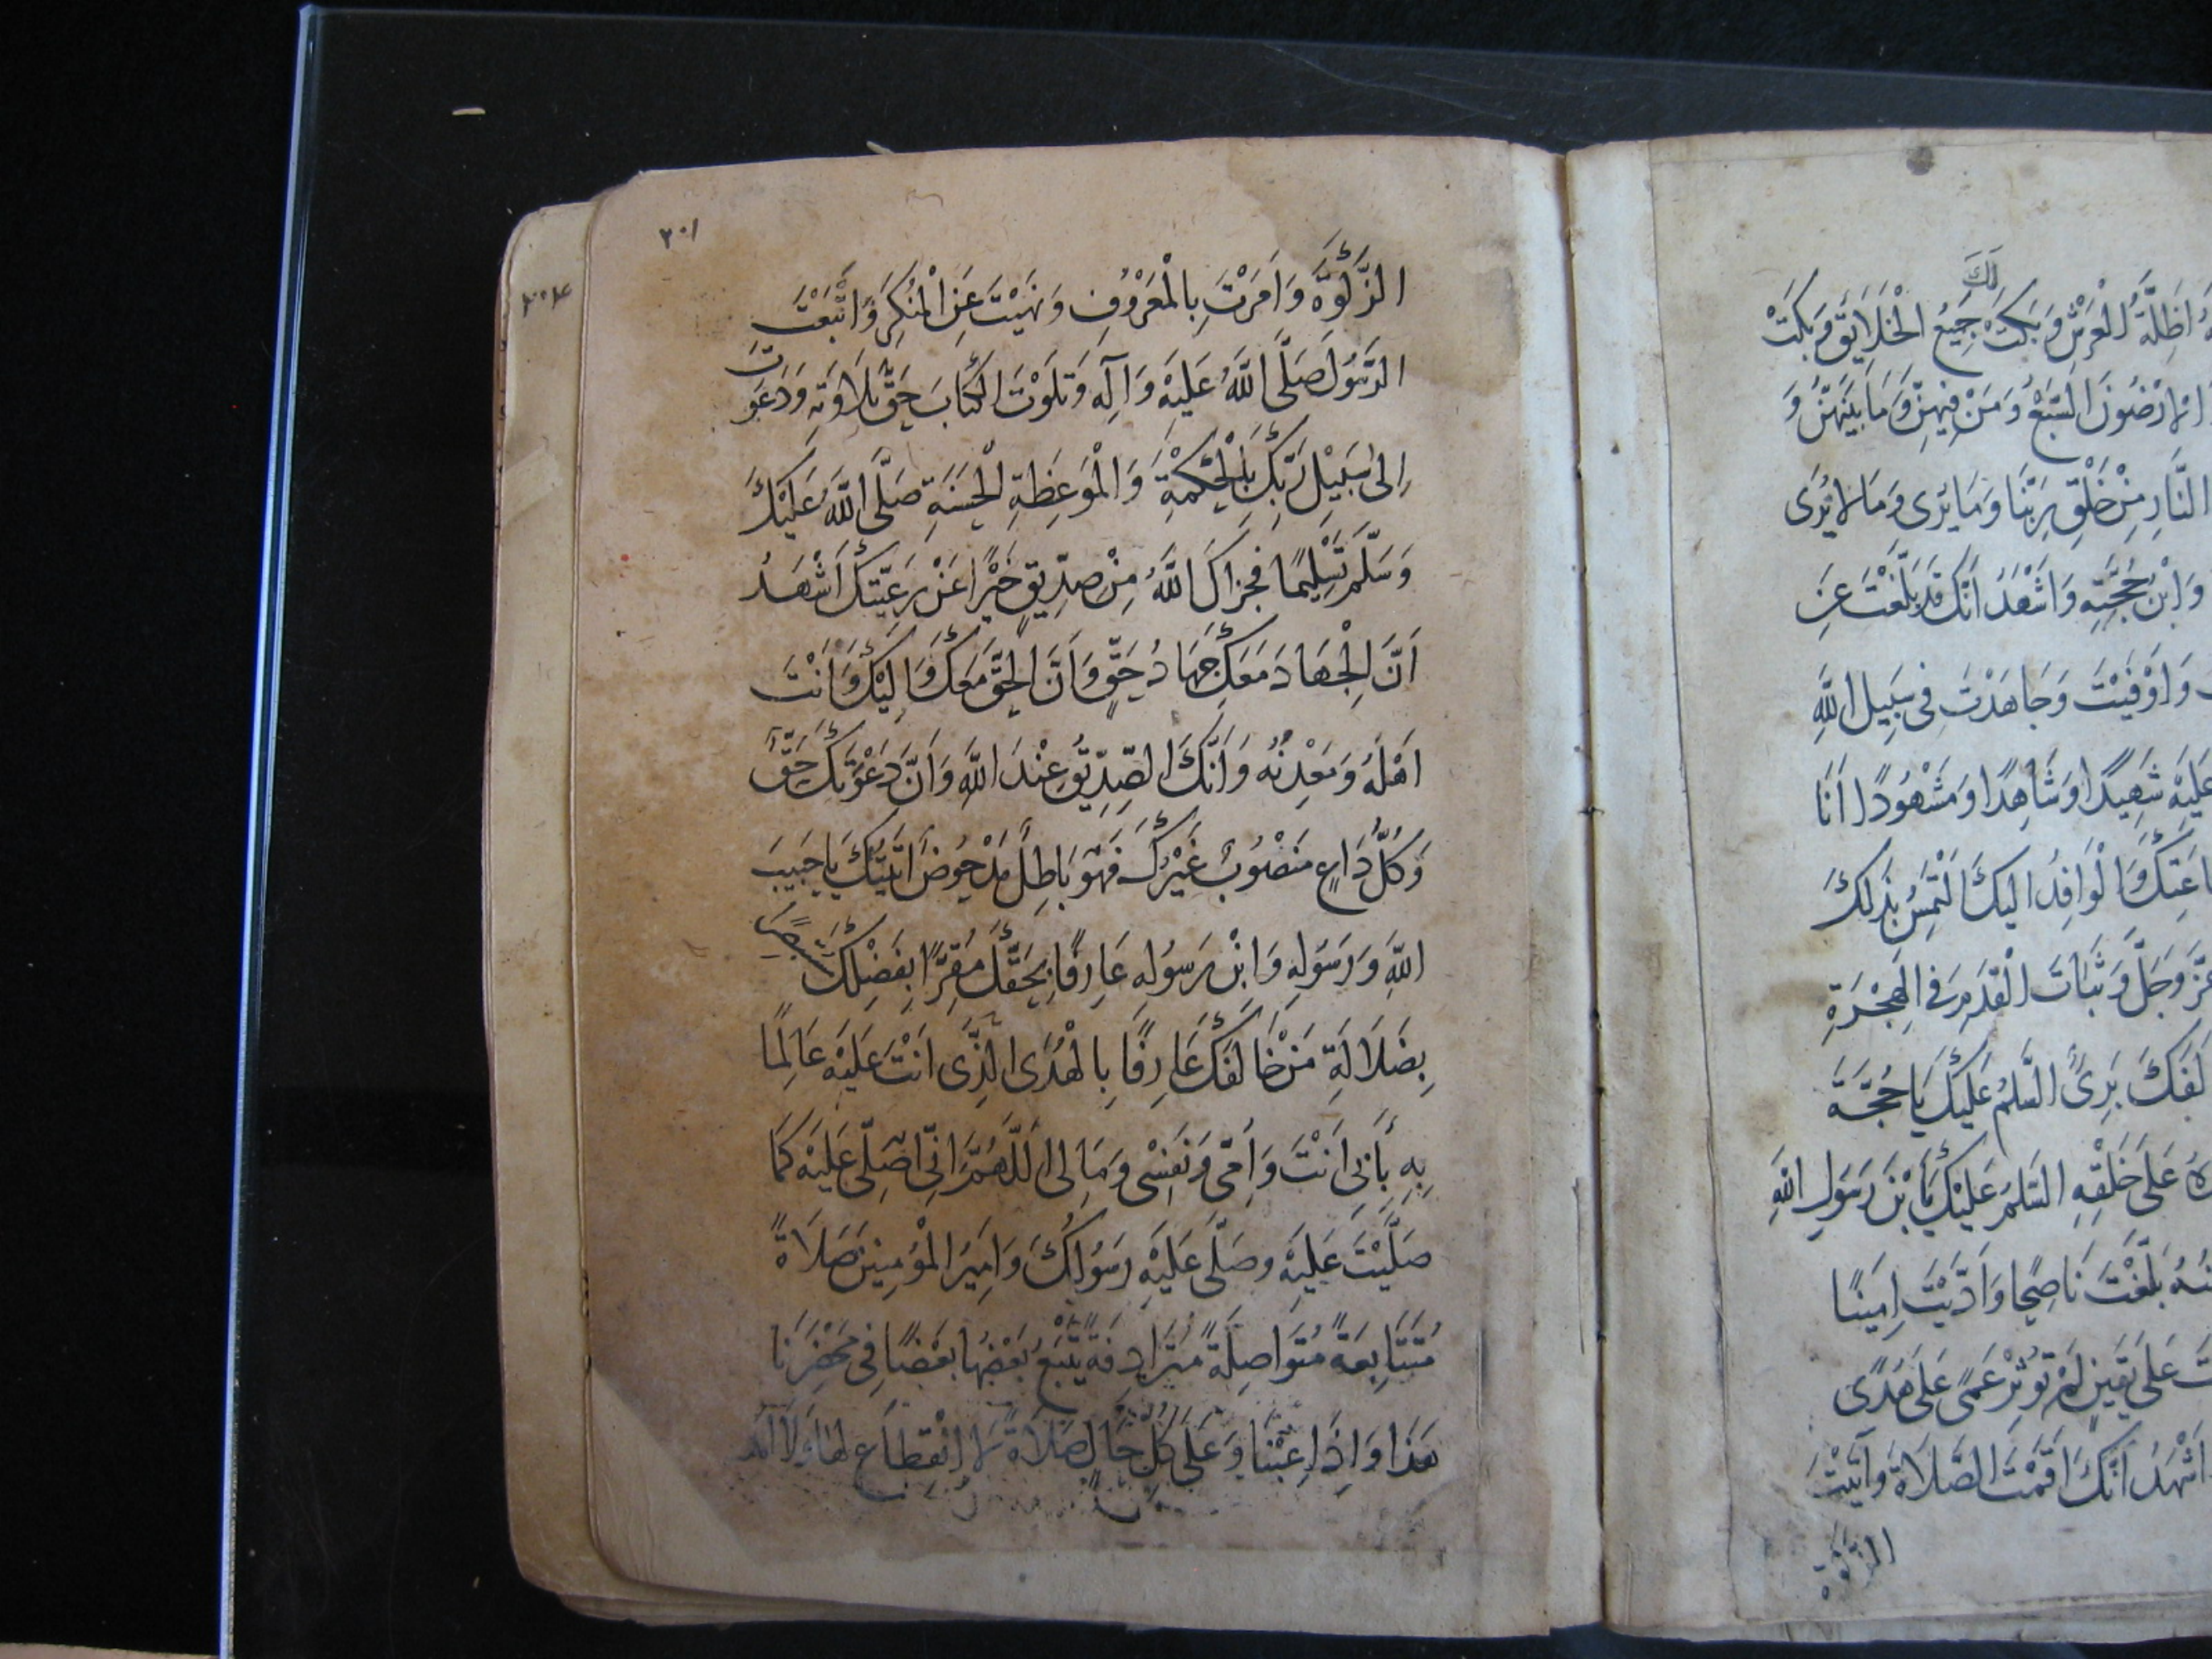 لَكَ
اَظِلَّةُ الْعَرْشِ وَبَكَتْ جَمِيعُ الْخَلَايِقِ وَبَكَتْ
الارَضُونَ السَّبْعُ وَمَنْ فِيهِنَّ وَمَا بَيْنَهُنَّ وَ
النَّارِ مِنْ خَلْقِ رَبِّنَا وَمَا يُرَى وَمَا لا يُرَى
وَابْنُ حُجَّتِهِ وَاَشْهَدُ اَنَّكَ قَدْ بَلَّغْتَ عَنِ
وَاَوْفَيْتَ وَجَاهَدْتَ فِى سَبِيلِ اللَّهِ
عَلَيْهِ شَهِيدًا وَشَاهِدًا وَمَشْهُودًا اَنَا
طَاعَتِكَ وَالْوَافِدُ اِلَيْكَ اَلْتَمِسُ بِذَلِكَ
عَزَّ وَجَلَّ وَثَبَاتَ الْقَدَمِ فِى الْهِجْرَةِ
بَرِىءٌ السَّلَمُ عَلَيْكَ يَا حُجَّةَ
عَلَى خَلْقِهِ السَّلَمُ عَلَيْكَ يَابْنَ رَسُولِ اللَّهِ
بَلَّغْتَ نَاصِحًا وَاَدَّيْتَ اَمِينًا
عَلَى يَقِينٍ لَمْ تُؤْثِرْ عَمًى عَلَى هُدًى
اَشْهَدُ اَنَّكَ اَقَمْتَ الصَّلَاةَ وَآتَيْتَ
الزَّكوةَ
٢٠١
٢٠٤
الزَّكوةَ وَاَمَرْتَ بِالْمَعْرُوفِ وَنَهَيْتَ عَنِ الْمُنْكَرِ وَاتَّبَعْتَ
الرَّسُولَ صَلَّى اللَّهُ عَلَيْهِ وَآلِهِ وَتَلَوْتَ الْكِتَابَ حَقَّ تِلَاوَتِهِ وَدَعَوْتَ
اِلى سَبِيلِ رَبِّكَ بِالْحِكْمَةِ وَالْمَوْعِظَةِ الْحَسَنَةِ صَلَّى اللَّهُ عَلَيْكَ
وَسَلَّمَ تَسْلِيمًا فَجَزَاكَ اللَّهُ مِنْ صِدِّيقٍ خَيْرًا عَنْ رَعِيَّتِكَ اَشْهَدُ
اَنَّ الْجِهَادَ مَعَكَ جِهَادُ حَقٍّ وَاَنَّ الْحَقَّ مَعَكَ وَاِلَيْكَ وَاَنْتَ
اَهْلُهُ وَمَعْدِنُهُ وَاَنَّكَ الصِّدِّيقُ عِنْدَ اللَّهِ وَاَنَّ دَعْوَتَكَ حَقٌّ
وَكُلُّ دَاعٍ مَنْصُوبٌ غَيْرُكَ فَهُوَ بَاطِلٌ مَدْحُوضٌ اَتَيْتُكَ يَا حَبِيبَ
اللَّهِ وَرَسُولِهِ وَابْنَ رَسُولِهِ عَارِفًا بِحَقِّكَ مُقِرًّا بِفَضْلِكَ مُسْتَبْصِرًا
بِضَلَالَةِ مَنْ خَالَفَكَ عَارِفًا بِالْهُدَى الَّذِى اَنْتَ عَلَيْهِ عَالِمًا
بِهِ بِاَبِى اَنْتَ وَاُمِّى وَنَفْسِى وَمَالِى اَللَّهُمَّ اِنِّى اُصَلِّى عَلَيْهِ كَمَا
صَلَّيْتَ عَلَيْهِ وَصَلَّى عَلَيْهِ رَسُولُكَ وَاَمِيرُ الْمُؤْمِنِينَ صَلَاةً
مُتَتَابِعَةً مُتَوَاصِلَةً مُتَرَادِفَةً يَتْبَعُ بَعْضُهَا بَعْضًا فِى مَحْضَرِنَا
هَذَا وَاِذَا غِبْنَا وَعَلَى كُلِّ حَالٍ صَلَاةً لا انْقِطَاعَ لَهَا وَلَا